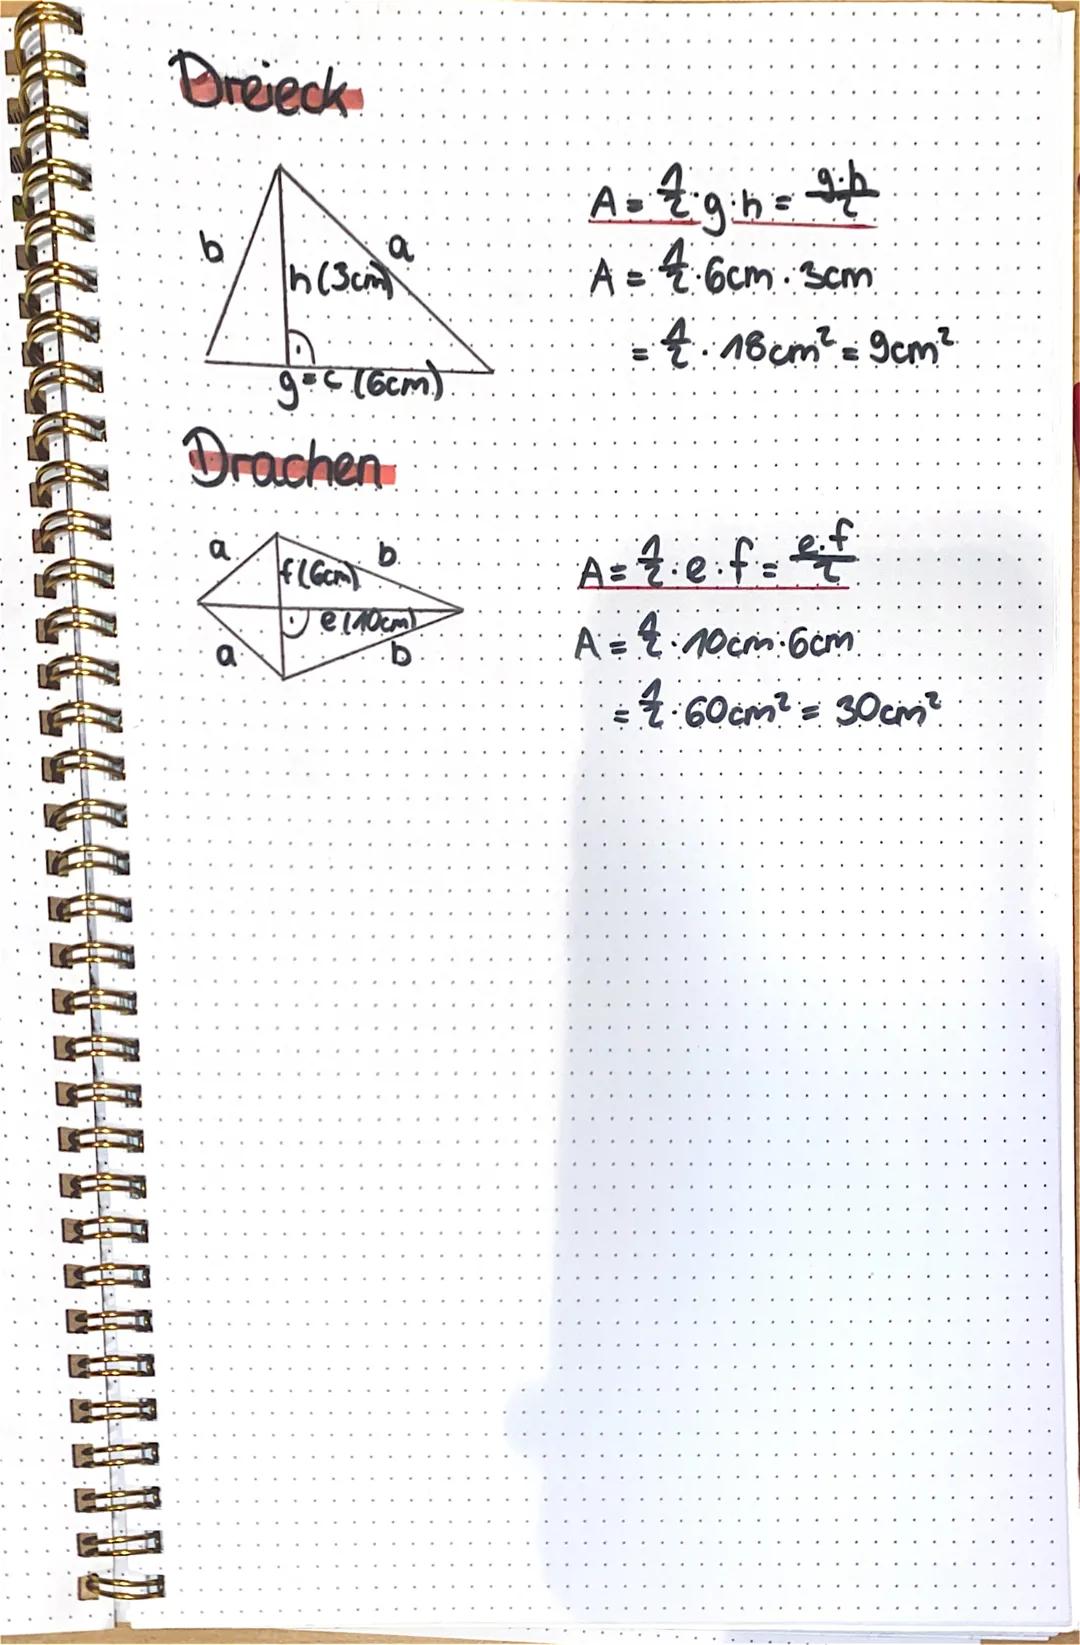 Dreieck
b
a
h (3cm)
g = c (6cm)
A = 1/2 · g · h = g·h/2
A = 1/2 · 6cm · 3cm
= 1/2 · 18cm² = 9cm²
Drachen
a
b
f (6cm)
e (10cm)
a
b
A = 1/2 · e · f = e·f/2
A = 1/2 · 10cm · 6cm
= 1/2 · 60cm² = 30cm²